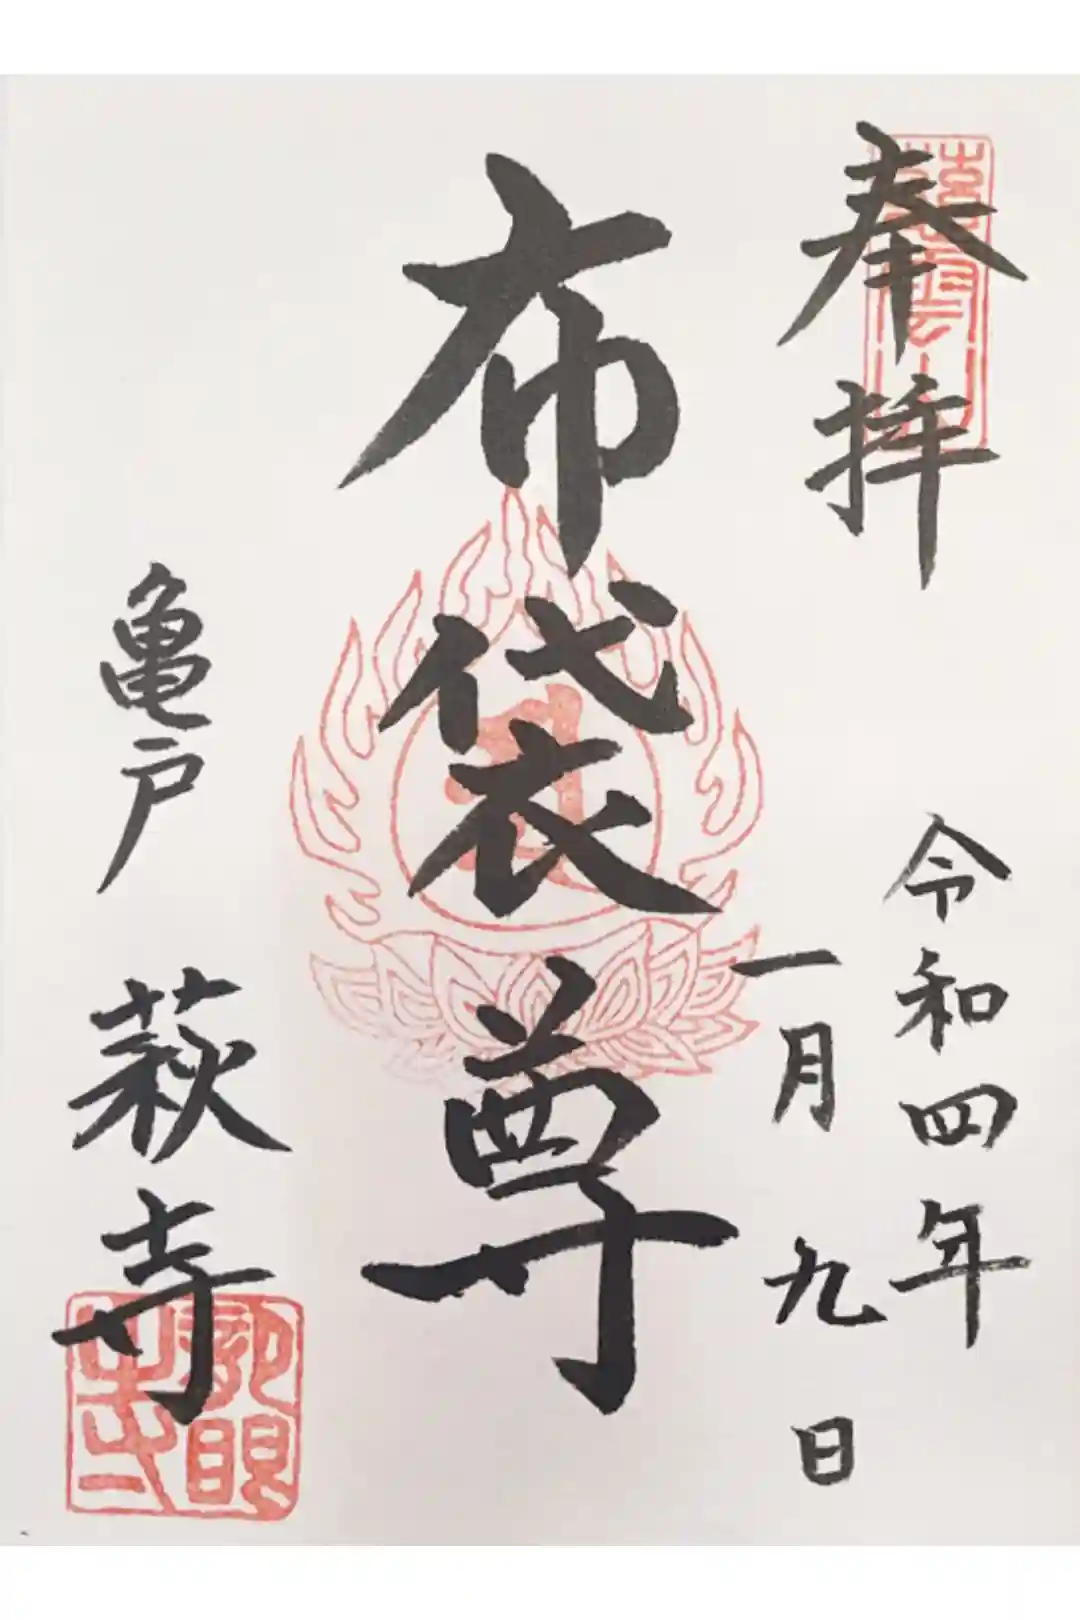 奉拝
令和四年
一月九日
布袋尊
亀戸 萩寺